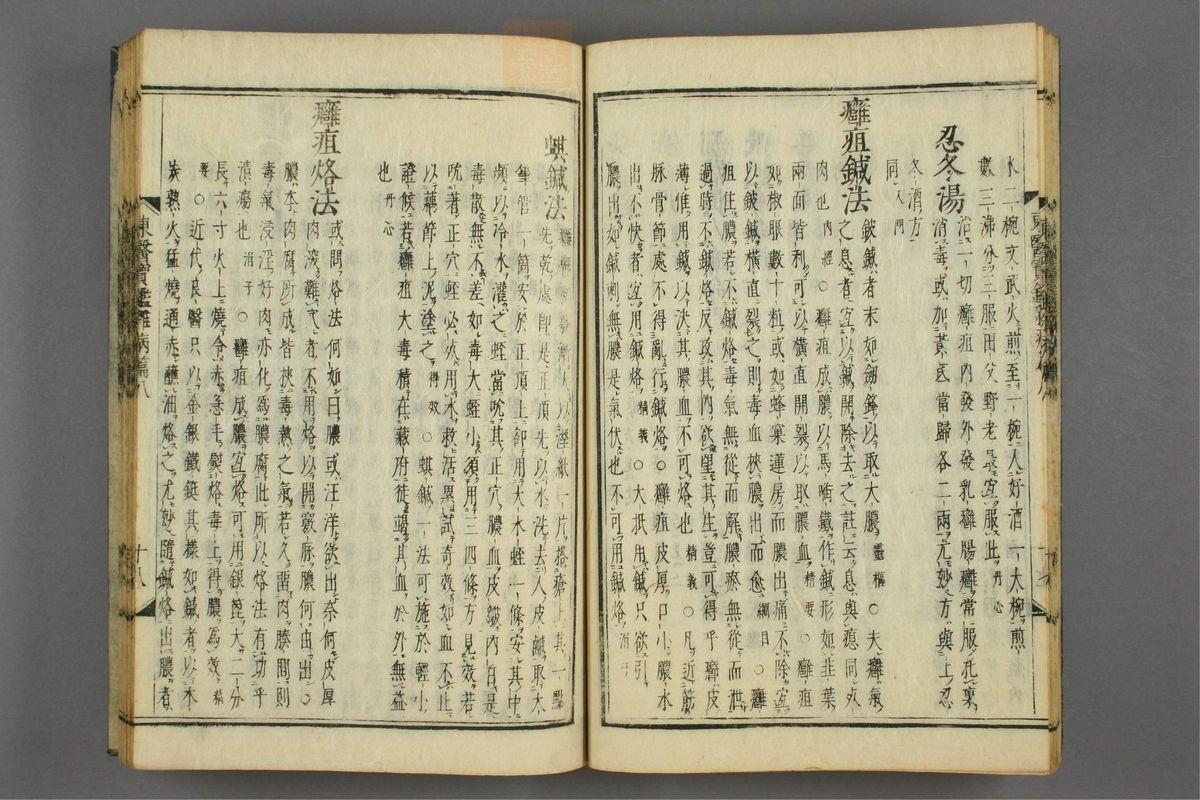 水二椀文武火煎至一椀入好酒一大椀煎
數三沸分三服田父野老最宜服此丹心
忍冬湯 治一切癰疽內發外發乳癰腸癰常服托裏
消毒或加黃芪當歸各二兩尤妙方與上忍
冬酒方
同入門
癰疽鍼法 鈹鍼者末如劒鋒以取大膿靈樞○夫癰氣
之息者宜以鍼開除去之註云息與瘜同死
肉也內經○癰疽成膿以馬啣鐵作鍼形如韭葉
兩面皆利可以橫直開裂以取膿血精要○癰
如椒眼數十粒或如蜂窠蓮房而膿出痛不除宜
以鈹鍼橫直裂之則毒血挾膿出而愈綱目○癰
疽住膿若不鍼烙毒氣無從而解膿瘀無從而泄
過時不鍼烙反攻其內欲望其生豈可得乎癤皮
薄惟用鍼以決其膿血不可烙也精義○凡近筋
脉骨節處不得亂行鍼烙○癰疽皮厚口小膿水
出不快者宜用鍼烙精義○大抵用鍼只欲引
膿出如鍼刺無膿是氣伏也不可用鍼烙涓子
東醫寶鑑雜病篇八
蜞鍼法 癰癤
先以濕紙一片搭瘡上其一點
先乾處即是正頂先以水洗去人皮鹹取大
筆管一筒安於正頂上却用大水蛭一條安其中
頻以冷水灌之蛭當吮其正穴膿血皮皺內白是
毒散無不差如毒大蛭小須用三四條方見效若
吮著正穴蛭必死用水救活累試奇效如血不止
以藕節上泥塗之得效○蜞鍼一法可施於輕小
證候若癰疽大毒積在藏府徒竭其血於外無益
也丹心
癰疽烙法 或問烙法何如曰膿或汪洋欲出奈何皮厚
肉深難穿者不用烙以開竅豚膿何由出○
膿本肉腐所成皆挾毒熱之氣若久留肉腠間則
毒氣浸淫好肉亦化爲膿腐此所以烙法有功乎
潰瘍也涓子○癰疽成膿宜烙可用銀篦大二分
長六寸火上燒令赤急手熨烙毒上得膿爲效精
要○近代良醫只以金銀鐵鋌其樣如鍼者以木
炭熟火猛燒通赤蘸油烙之尤妙隨鍼烙出膿者
東醫寶鑑雜病篇八 十八